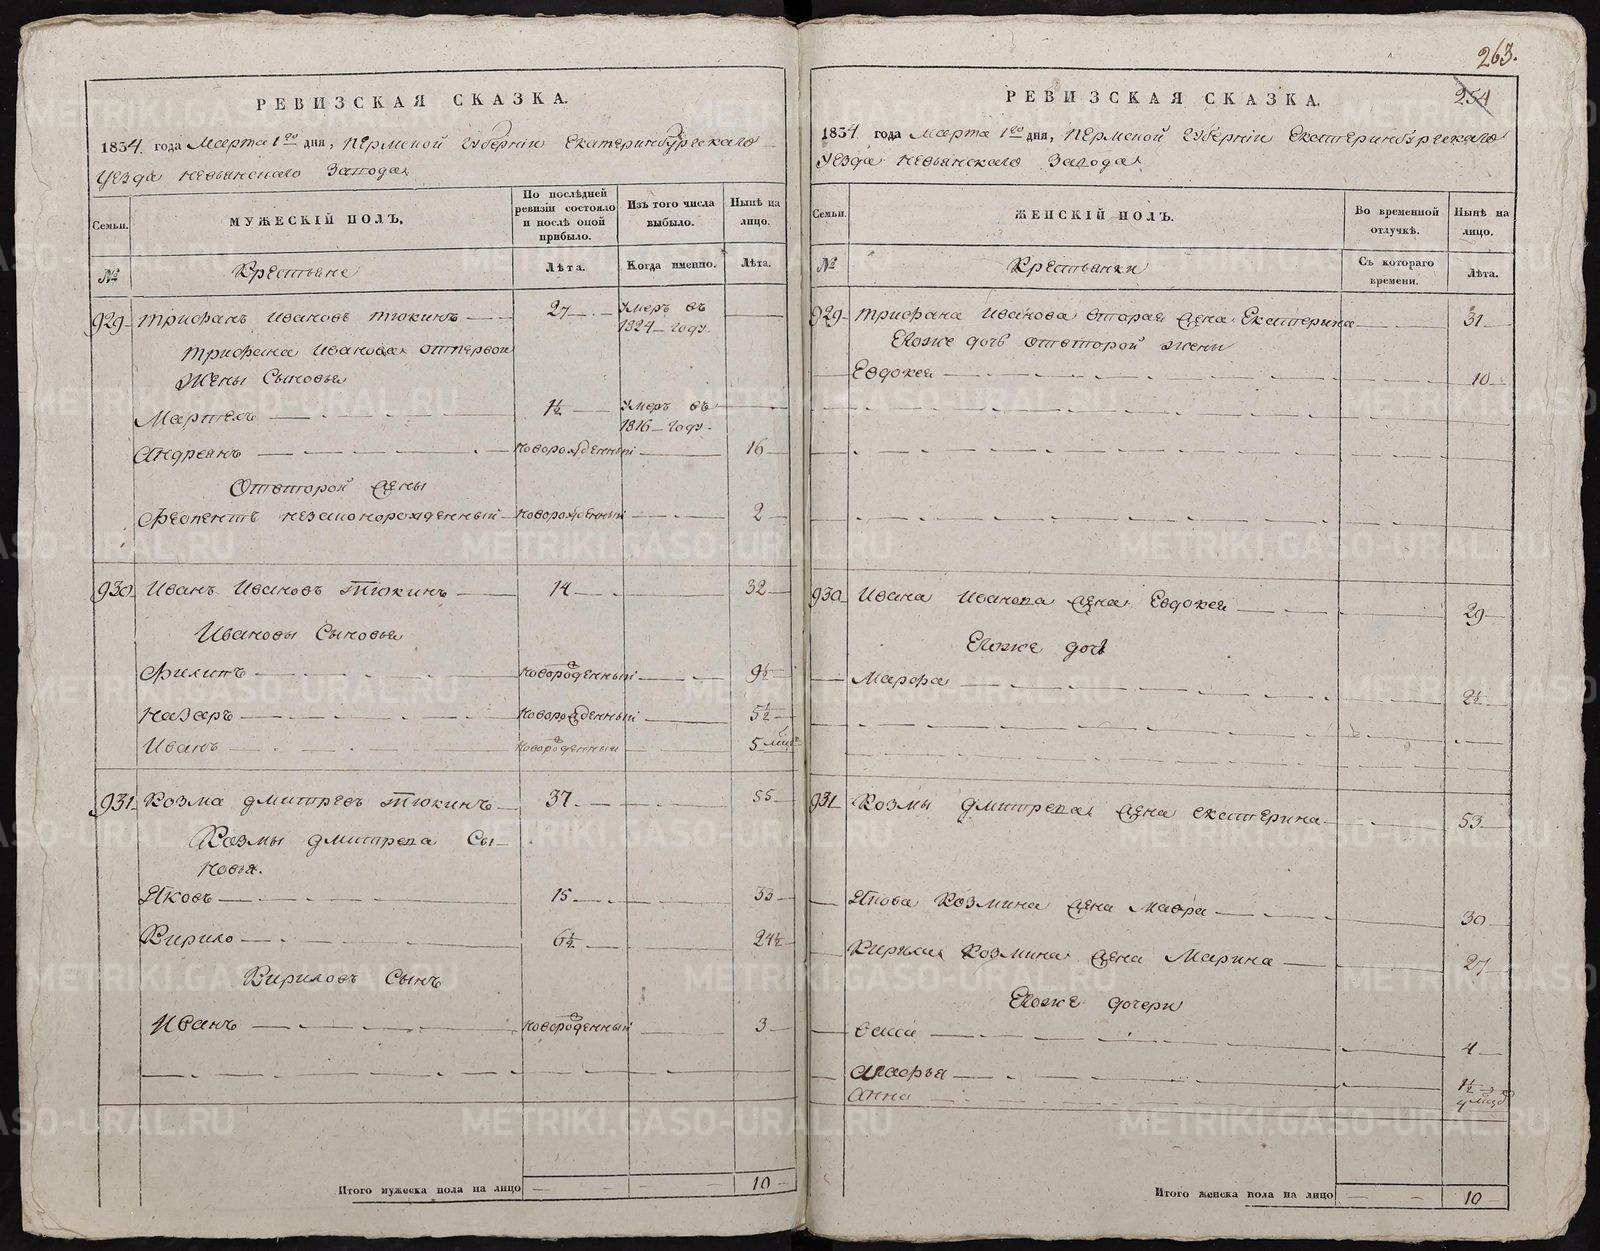 263.
254
РЕВИЗСКАЯ СКАЗКА.
1834. года Марта 1го дня, Пермской Губерніи Екатеринбургскаго
Уезда Невьянскаго Завода
Семьи.
МУЖЕСКІЙ ПОЛЪ.
По послѣдней ревизіи состояло и послѣ оной прибыло.
Изъ того числа выбыло.
Нынѣ на лицо.
№
Крестьяне
Лѣта.
Когда именно.
Лѣта.
929 Трифанъ Ивановъ Тюкинъ 27 Умеръ въ 1824 году
Трифана Иванова отпервой
Жены Сыновья
Мартелъ 1½ Умеръ въ 1816 году
Андреянъ новорожденный 16
Отвторой жены
Ферпентъ незаконорожденный новорожденный 2
930 Иванъ Ивановъ Тюкинъ 14 32
Ивановы Сыновья
Филипъ новорожденный 9½
Назаръ новорожденный 5½
Иванъ новорожденный 5 мцъ
931 Козма Дмитревъ Тюкинъ 37 55
Козмы Дмитрева Сы-
новья.
Яковъ 15 33
Кирило 6½ 24½
Кириловъ Сынъ
Иванъ новорожденный 3
Итого мужеска пола на лицо 10
РЕВИЗСКАЯ СКАЗКА.
1834. года Марта 1го дня, Пермской Губерніи Екатеринбургскаго
Уезда Невьянскаго Завода
Семьи.
ЖЕНСКІЙ ПОЛЪ.
Во временной отлучкѣ.
Нынѣ на лицо.
№
Крестьянки
Съ котораго времени.
Лѣта.
929 Трифана Иванова вторая жена Екатерина 31
Егоже дочь отвторой жены
Евдокея 10
930 Ивана Иванова жена Евдокея 29
Егоже дочь
Марфа 2½
931 Козмы Дмитрева жена Екатерина 53
Якова Козмина жена Мавра 30
Кирила Козмина жена Марина 27
Егоже дочери
4
Агафья 1½
Анна 4 мцъ
Итого женска пола на лицо 10
METRIKI.GASO-URAL.RU